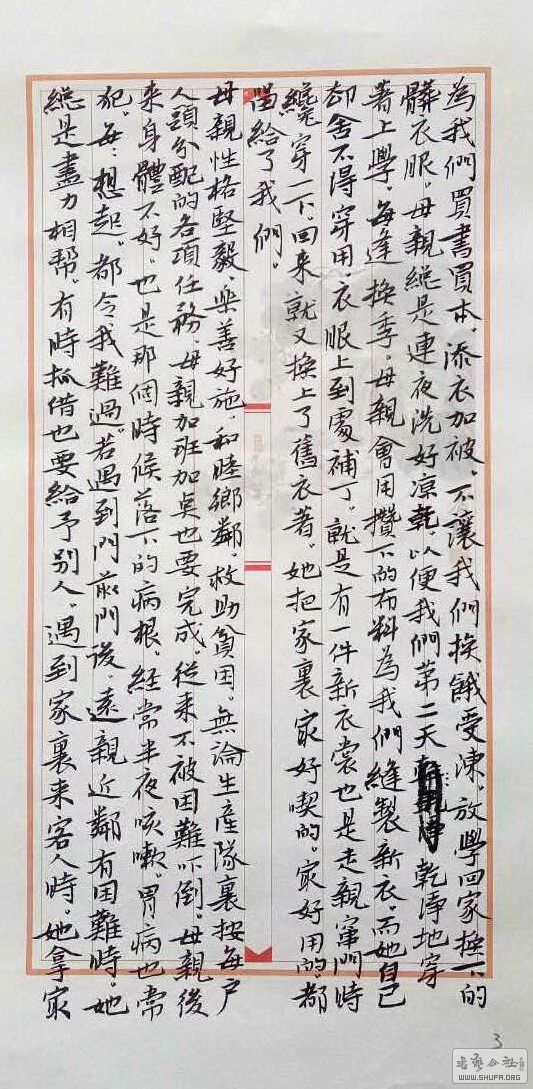 為我們買書買本，添衣加被，不讓我們挨餓受凍，放學回家換下的
髒衣服，母親總是連夜洗好涼乾，以便我們第二天乾淨地穿
著上學。每逢換季，母親會用攢下的布料為我們縫製新衣，而她自己
却舍不得穿用，衣服上到處補丁，就是有一件新衣裳也是走親竄門時
纔穿一下，回來就又換上了舊衣著。她把家裏最好喫的，最好用的，都
留給了我們。
母親性格堅毅，樂善好施，和睦鄉鄰，救助貧困。無論生產隊裏按每户
人頭分配的各項任務，母親加班加點也要完成，從来不被困難吓倒。母親後
来身體不好，也是那個時候落下的病根，經常半夜咳嗽，胃病也常
犯。每：想起，都令我難過。若遇到門前門後，遠親近鄰有困難時，她
總是盡力相幫。有時抓借也要給予别人，遇到家裏来客人時，她拿最
3
书艺公社
WWW.SHUFA.ORG